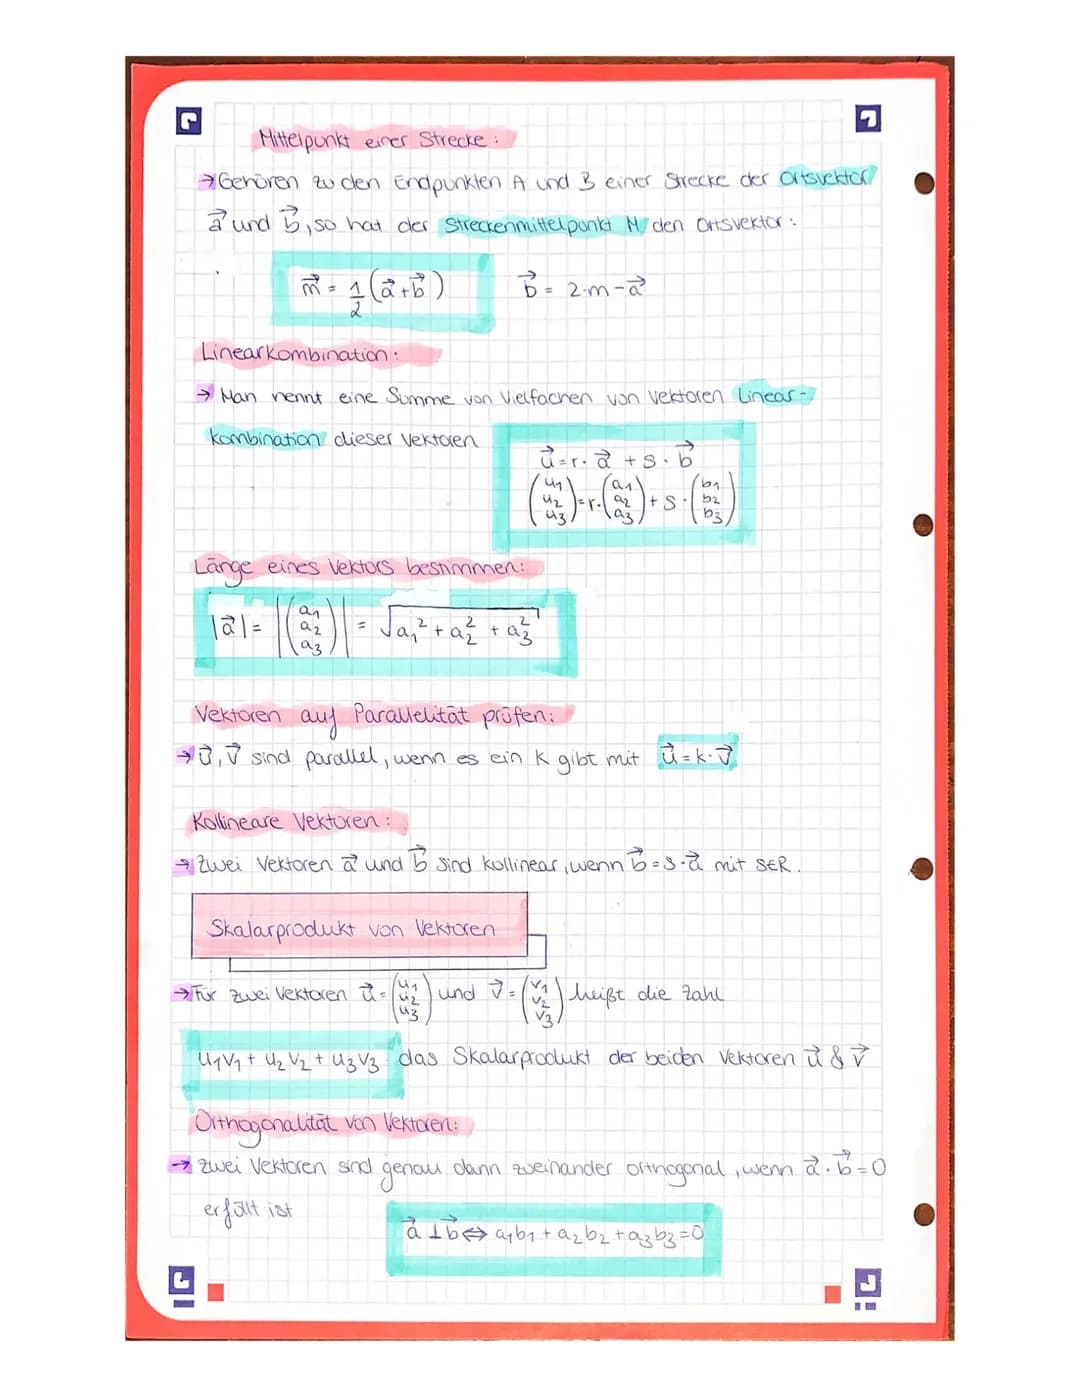 Mittelpunkt einer Strecke:
→ Gehören zu den Endpunkten A und B einer Strecke der Ortsvektor
a⃗ und b⃗, so hat der Streckenmittelpunkt M den Ortsvektor:
m⃗ = 1/2 (a⃗ + b⃗) b⃗ = 2·m - a⃗
Linearkombination:
→ Man nennt eine Summe von Vielfachen von Vektoren Linear-
kombination dieser Vektoren
u⃗ = r · a⃗ + s · b⃗
(u1 u2 u3) = r · (a1 a2 a3) + s · (b1 b2 b3)
Länge eines Vektors bestimmen:
|a⃗| = |(a1 a2 a3)| = √(a1² + a2² + a3²)
Vektoren auf Parallelität prüfen:
→ u⃗, v⃗ sind parallel, wenn es ein k gibt mit u⃗ = k · v⃗
Kollineare Vektoren:
→ Zwei Vektoren a⃗ und b⃗ sind kollinear, wenn b⃗ = s · a⃗ mit s∈R.
Skalarprodukt von Vektoren
→ Für zwei Vektoren u⃗ = (u1 u2 u3) und v⃗ = (v1 v2 v3) heißt die Zahl
u1v1 + u2v2 + u3v3 das Skalarprodukt der beiden Vektoren u⃗ & v⃗
Orthogonalität von Vektoren:
→ zwei Vektoren sind genau dann zweinander orthogonal, wenn a⃗ · b⃗ = 0
erfält ist
a⃗ ⊥ b⃗ ⇔ a1b1 + a2b2 + a3b3 = 0